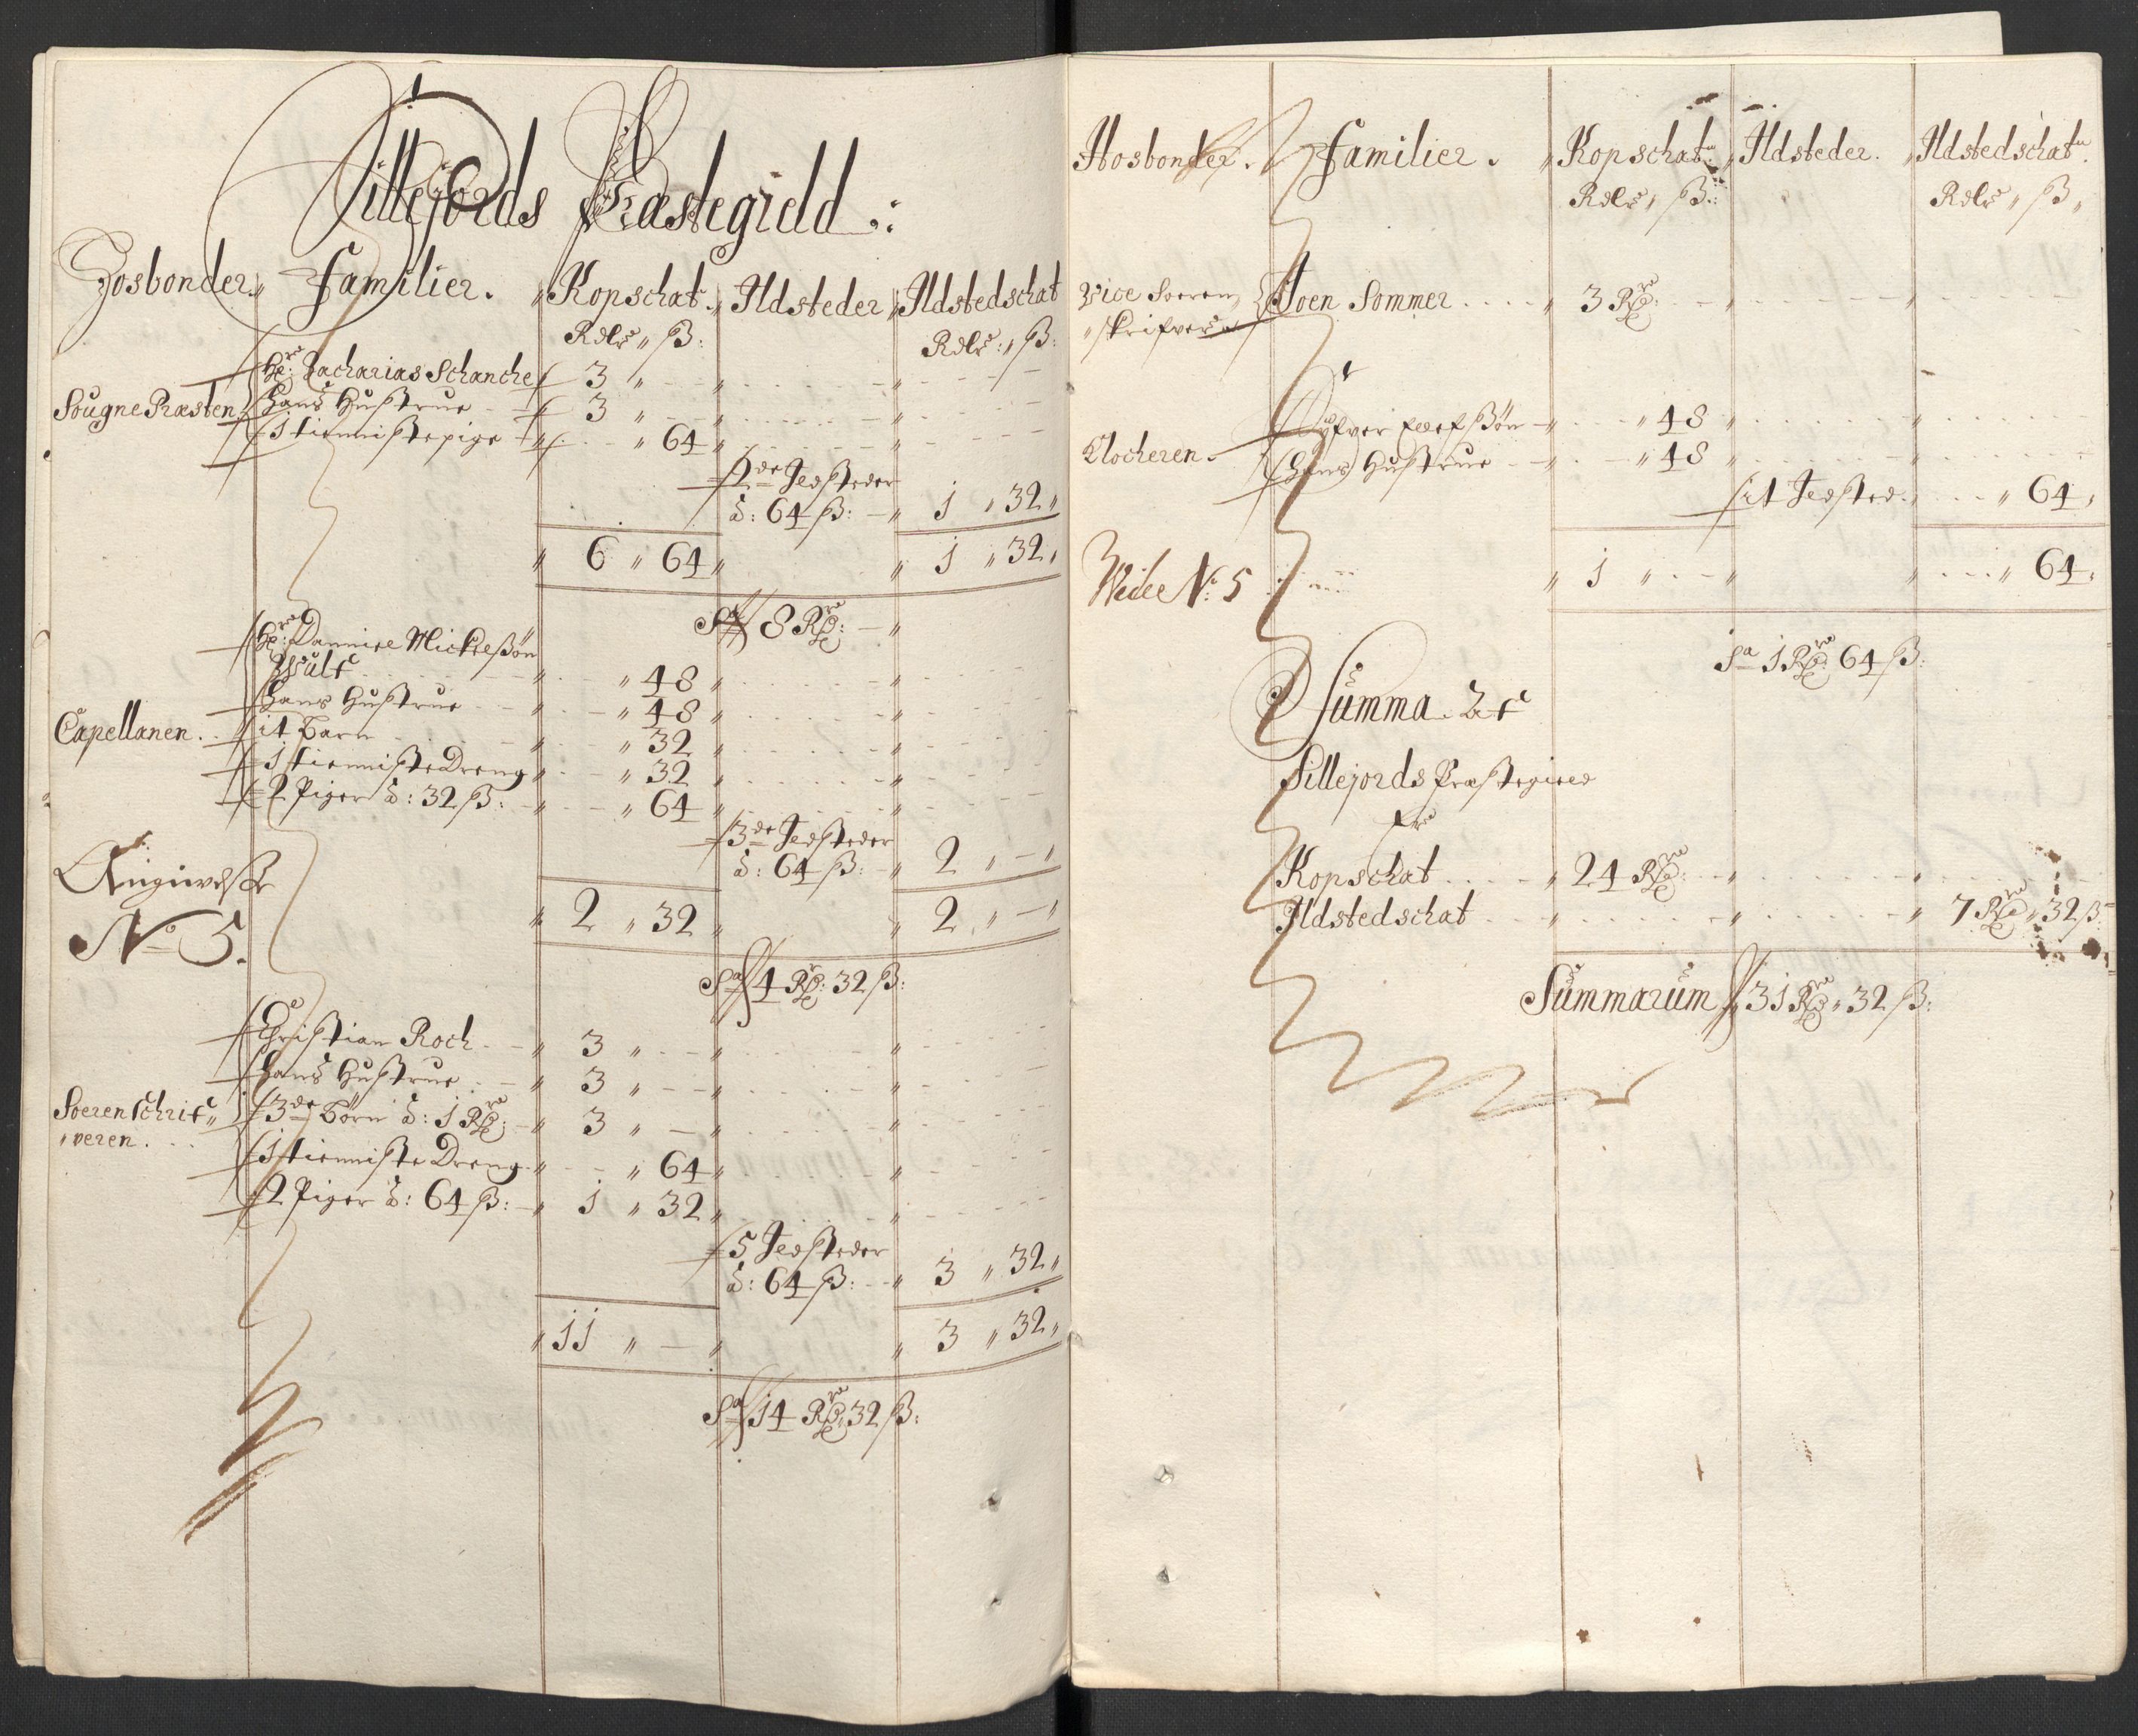 Sillejords Præstegield .:
Hosbonder. Familier. Kopschat. Ildsteder Ildstedschat
Rdlr „ ß: Rdlr: „ ß:
Hr: Zacharias Schanche 3 „ -
Sougne Præsten. Hans Hustrue 3 „ -
1 tienniste pige „ 64
2de Ildsteder
à: 64 ß: 1 „ 32 „
6 „ 64 „ 1 „ 32 „
Sa 8 Rdr: -
Hr: Danniel Mickelßøn
Wulf „ 48
Hans Hustrue „ 48
Capellanen. it Barn „ 32
1 tienniste Dreng „ 32
2 Piger à: 32 ß: „ 64
3de Ildsteder
à: 64 ß: 2 „ - „
No 5.
2 „ 32 „ 2 „ - „
Sa 4 Rdr: 32 ß:
Christian Roch 3 „ -
Hans Hustrue 3 „ -
Soeren Schrif„ 3de Børn à: 1 Rdr: 3 „ -
„veren. 1 tienniste Dreng „ 64
2 Piger à: 64 ß: 1 „ 32
5 Ildsteder
à: 64 ß: 3 „ 32 „
11 „ - 3 „ 32 „
Sa 14 Rdr 32 ß:
Hosbonder. Familier. Kopschat. Ildsteder. Ildstedschat.
Rdlr „ ß: Rdlr „ ß „
Vice Soeren„ Joen Sommer 3 Rdr:
„skrifver
„ 48
Clocheren. Hans Hustrue „ 48
it Ildsted. „ 64 „
No 5 1 „ - „ 64 „
Sa 1 Rdr: 64 ß:
Summa. af
Sillejords Præstegield
Er
Kopschat 24 Rdr:
Ildstedschat 7 Rdr „ 32 ß
Summarum 31 Rdr „ 32 ß: